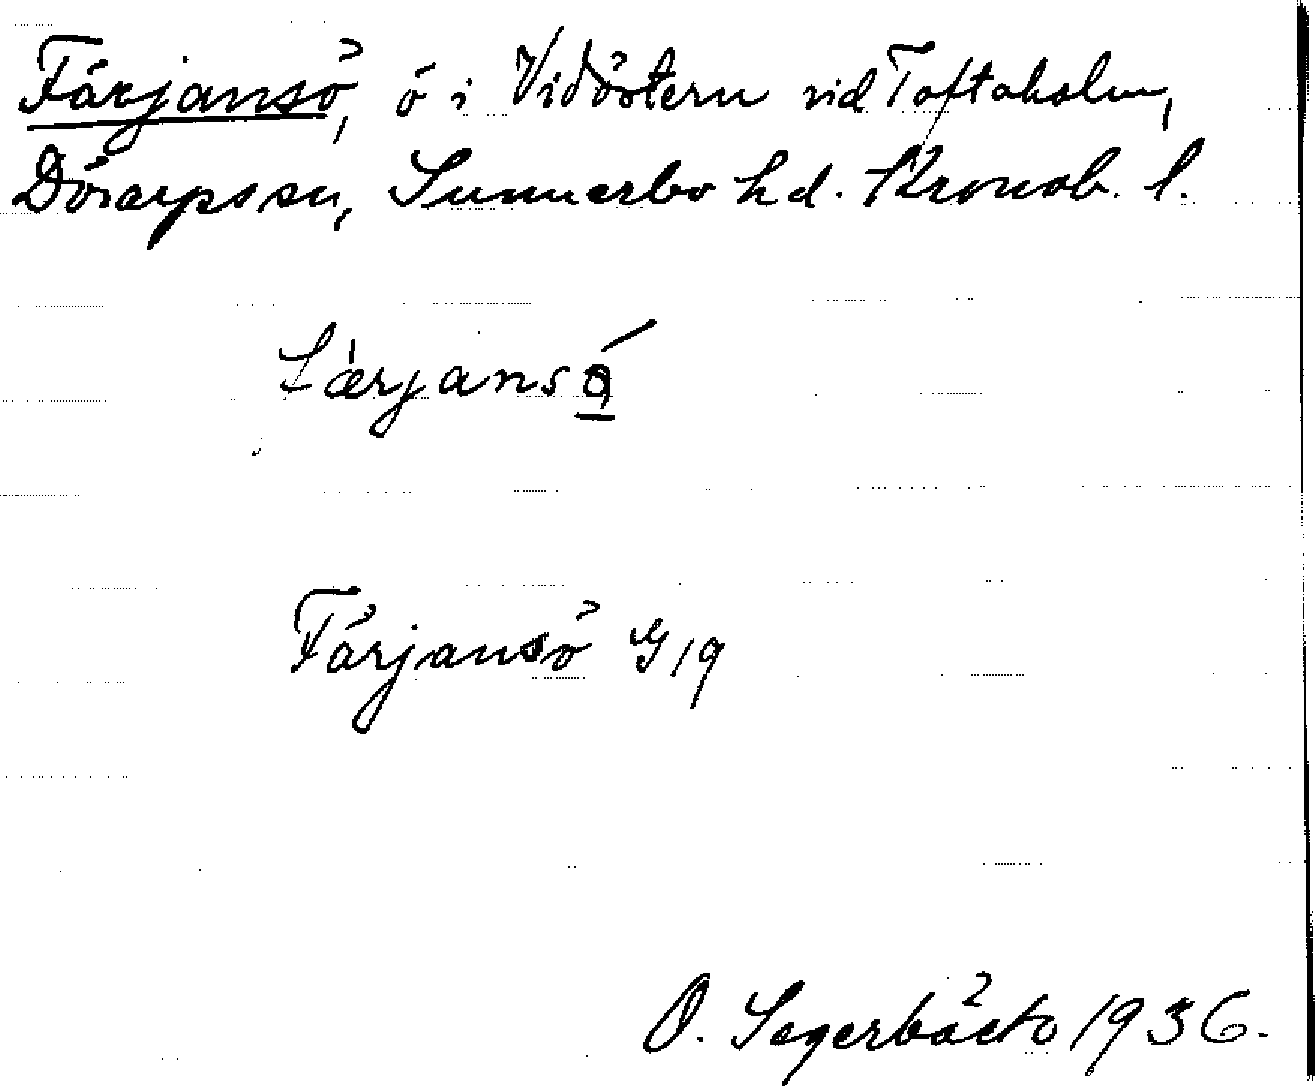 Färjansö, ö i Vidöstern vid Toftaholm,
Dörarps sn, Sunnerbo hd. Kronob. l.
Färjansö G 19
O. Segerbäck 1936.